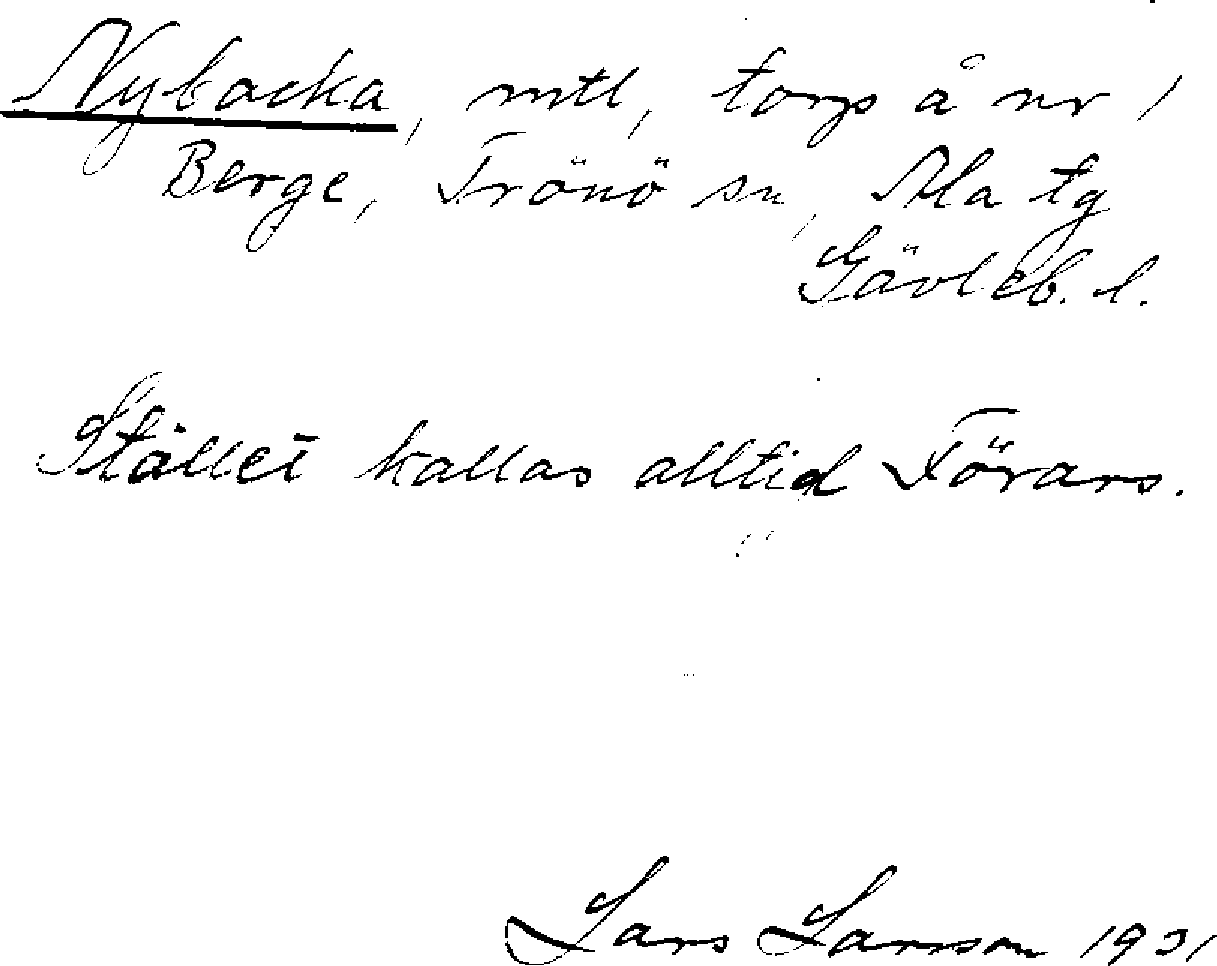 Nybacka, mtl, torp å nr 1
Berge, Trönö sn, Ala tg
Gävleb. l.
Stället kallas alltid Törars.
Lars Larsson 1931